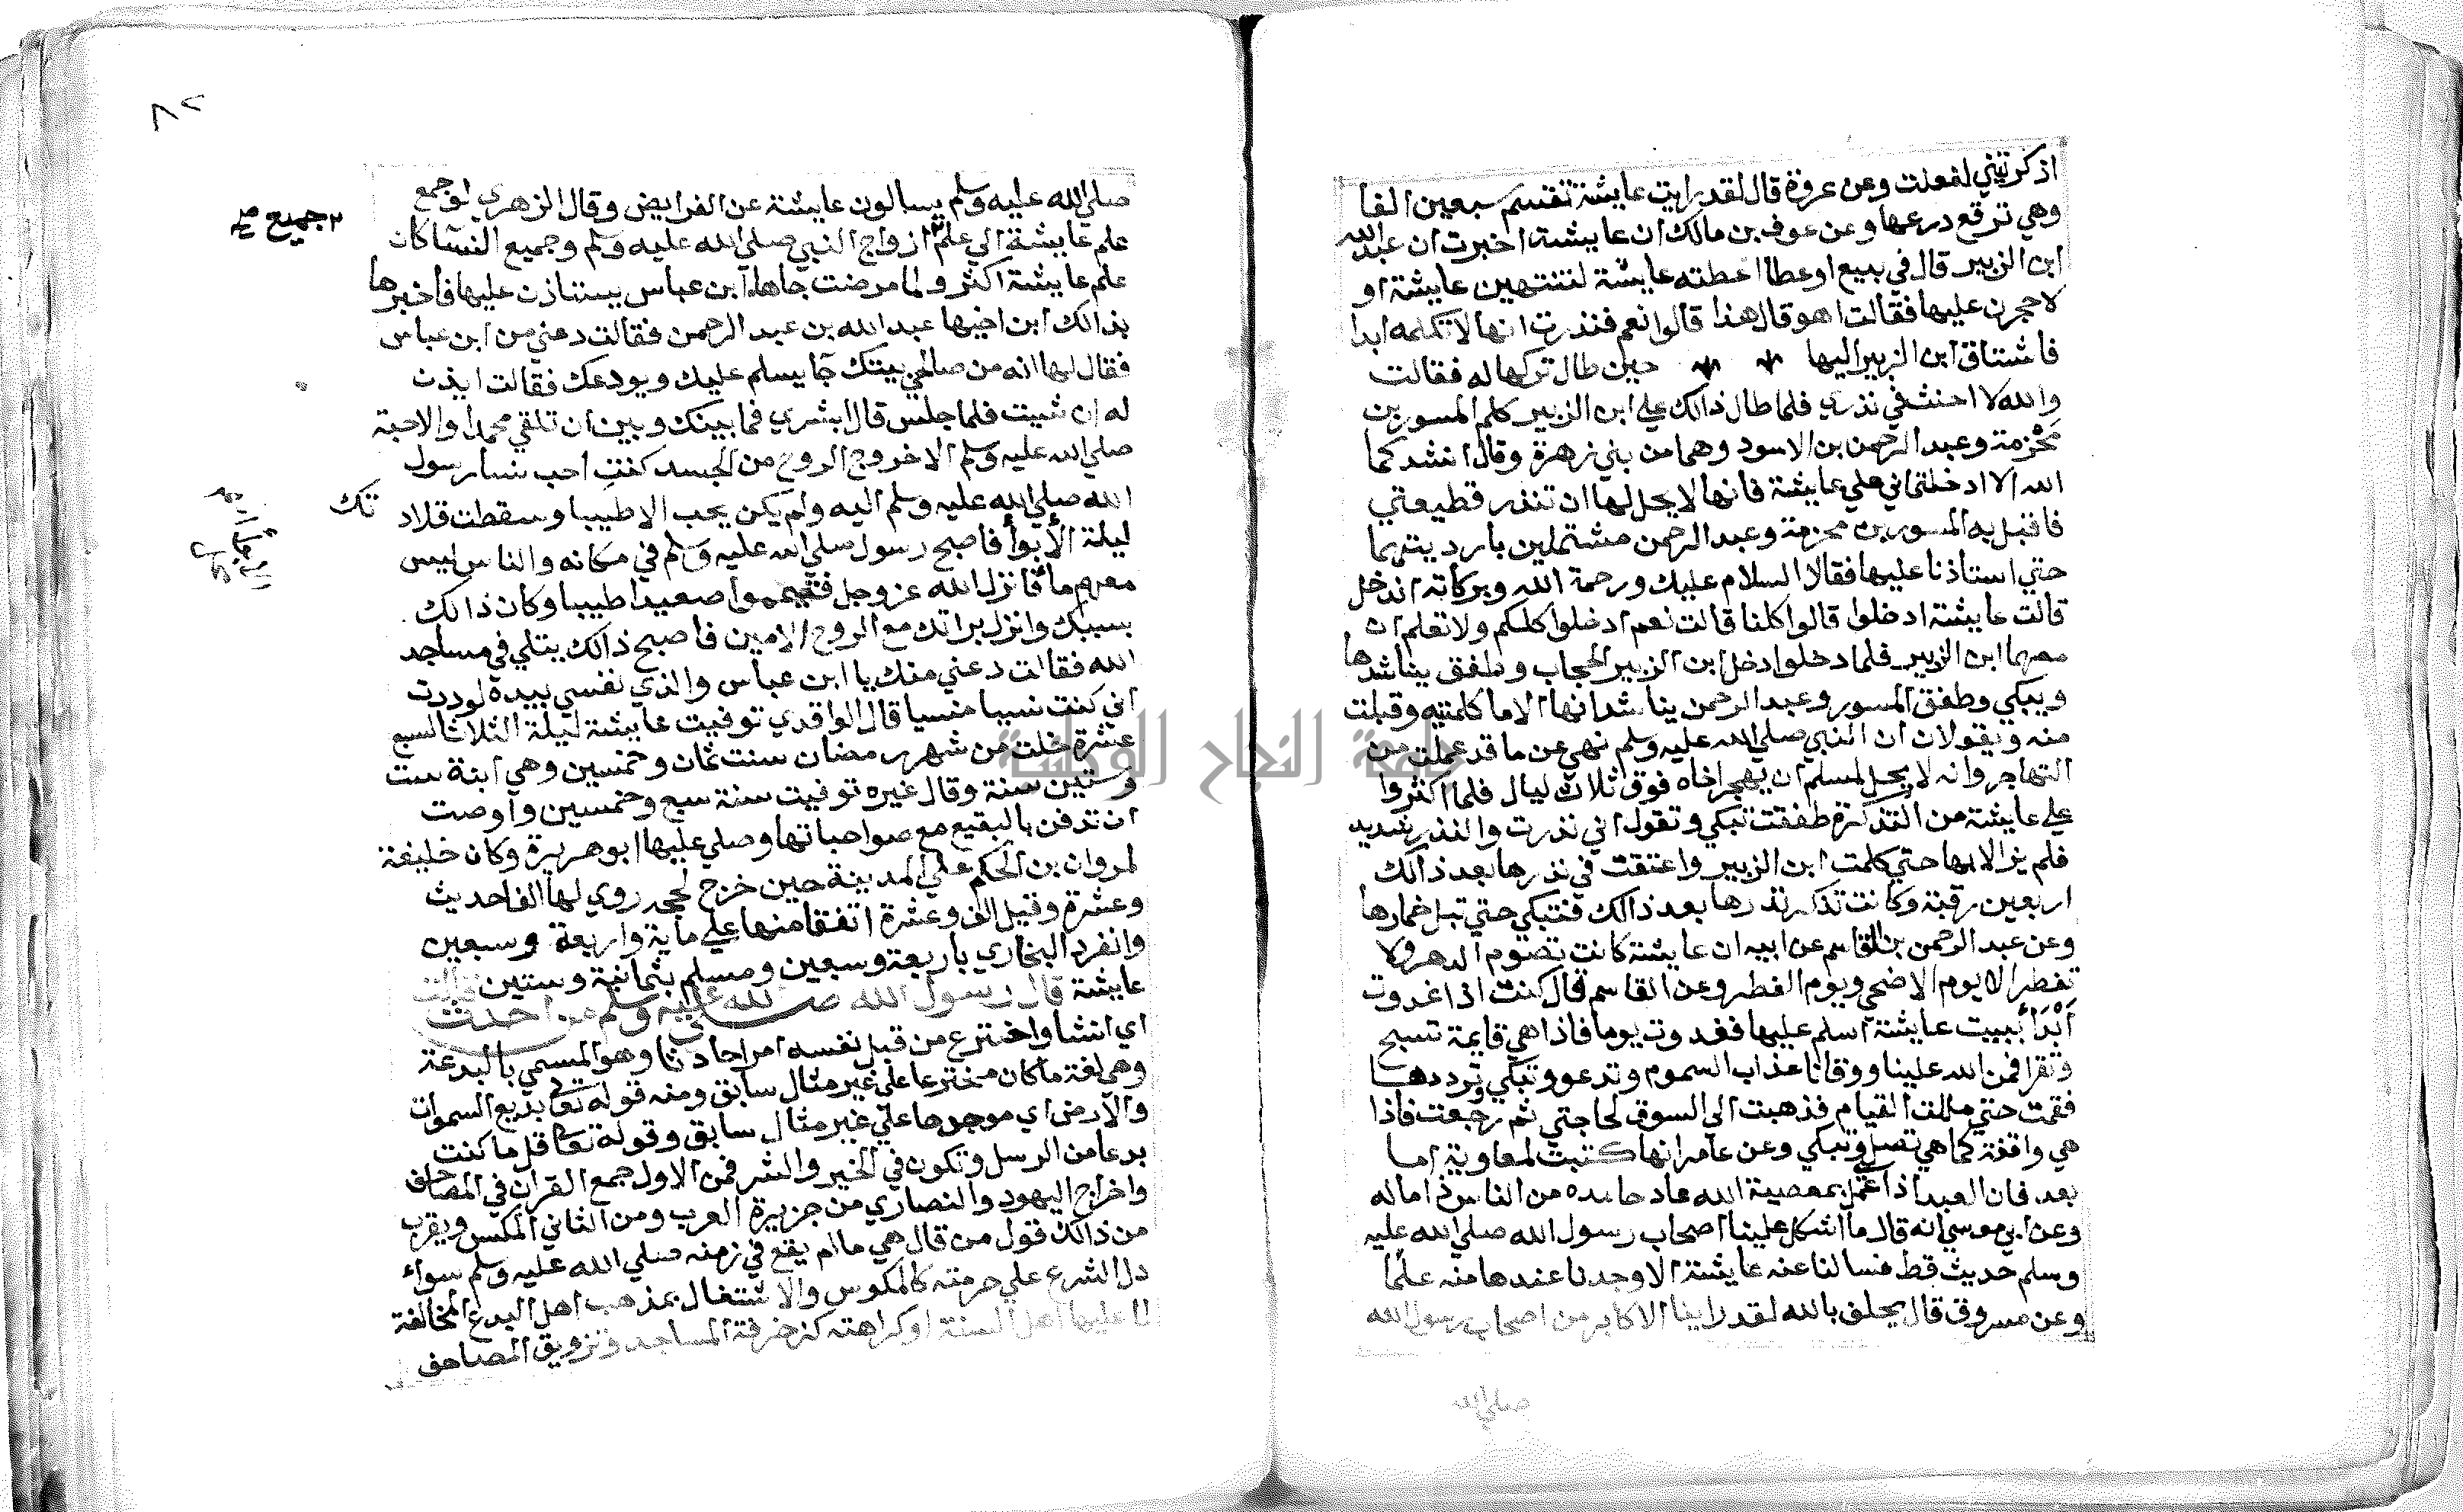 اذكرتيني لفعلت وعن عروة قال لقد رايت عايشة تقسم سبعين الفا
وهي ترقع درعها وعن عوف بن مالك ان عايشة اخبرت ان عبد الله
ابن الزبير قال في بيع او عطا اعطته عايشة لتنتهين عايشة او
لاحجرن عليها فقالت اهو قال هذا قالوا نعم فنذرت انها لا تكلمه ابدا
فاشتاق ابن الزبير اليها حين طال تركها له فقالت
والله لا احنث في نذري فلما طال ذالك علي ابن الزبير كلم المسور بن
مخزمة وعبد الرحمن بن الاسود وهما من بني زهرة وقال انشدكما
الله الا ادخلتماني علي عايشة فانها لا يحل لها ان تنذر قطيعتي
فاقبل به المسور بن محزمة وعبد الرحمن مشتملين بارديتهما
حتي استاذنا عليها فقالا السلام عليك ورحمة الله وبركاته اندخل
قالت عايشة ادخلوا قالوا كلنا قالت نعم ادخلوا كلكم ولا تعلم ان
معهما ابن الزبير فلما دخلوا دخل ابن الزبير الحجاب وطفق يناشدها
ويبكي وطفق المسور وعبد الرحمن يناشدانها الا ما كلمتيه وقبلت
منه ويقولان ان النبي صلي الله عليه وسلم نهي عن ما قد عملت من
التهاجر وانه لا يحل لمسلم ان يهجر اخاه فوق ثلاث ليال فلما اكثروا
علي عايشة من التذكرة طفقت تبكي وتقول اني نذرت والنذر شديد
فلم يزالا بها حتي كلمت ابن الزبير واعتقت في نذرها بعد ذالك
اربعين رقبة وكانت تذكر نذرها بعد ذالك فتبكي حتي تبل خمارها
وعن عبد الرحمن بن القاسم عن ابيه ان عايشة كانت تصوم الدهر ولا
تفطر الا يوم الاضحي ويوم الفطر وعن القاسم قال كنت اذا غدوت
أبدأ ببيت عايشة اسلم عليها فغدوت يوما فاذا هي قايمة تسبح
وتقرا فمن الله علينا ووقانا عذاب السموم وتدعو وتبكي وترددها
فقمت حتي مللت القيام فذهبت الي السوق لحاجتي ثم رجعت فاذا
هي واقفة كما هي تصلي وتبكي وعن عامر انها كتبت لمعاوية اما
بعد فان العبد اذا عمل بمعصية الله عاد حامده من الناس ذاما له
وعن ابي موسي انه قال ما اشكل علينا اصحاب رسول الله صلي الله عليه
وسلم حديث قط فسالنا عنه عايشة الا وجدنا عندها منه علما
وعن مسروق قال يحلف بالله لقد راينا الاكابر من اصحاب رسول الله
صلي الله
٨٢
صلي الله عليه وسلم يسالون عايشة عن الفرايض وقال الزهري لو جمع
علم عايشة الي علم ازواج النبي صلي الله عليه وسلم وجميع النسا كان
٢ جميع صح
علم عايشة اكثر ولما مرضت جاها ابن عباس يستاذن عليها فاخبرها
بذالك ابن اخيها عبد الله بن عبد الرحمن فقالت دعني من ابن عباس
فقال لها انه من صالحي بيتك جا يسلم عليك ويودعك فقالت ايذن
له ان شيت فلما جلس قال ابشري فما بينك وبين ان تلقي محمدا والاحبة
صلي الله عليه وسلم الا خروج الروح من الجسد كنت احب نسا رسول
الله صلي الله عليه وسلم اليه ولم يكن يحب الا طيبا وسقطت قلاد
تك
ليلة الأبوأ فاصبح رسول صلي الله عليه وسلم في مكانه والناس ليس
معهم ما فانزل الله عز وجل فتيمموا صعيدا طيبا وكان ذالك
بسببك وانزل براتك مع الروح الامين فاصبح ذالك يتلي في مساجد
الله فقالت دعني منك يا ابن عباس والذي نفسي بيده لوددت
اني كنت نسيا منسيا قال الواقدي توفيت عايشة ليلة الثلاثا لسبع
عشرة خلت من شهر رمضان سنت ثمان وخمسين وهي ابنة ست
وستين سنة وقال غيره توفيت سنة سبع وخمسين واوصت
ان تدفن بالبقيع مع صواحباتها وصلي عليها ابو هريرة وكان خليفة
لمروان بن الحكم علي المدينة حين خرج لحج روي لها الفا حديث
وعشرة وقيل الف وعشرة اتفقا منها علي ماية واربعة وسبعين
وانفرد البخاري باربعة وسبعين ومسلم بثمانية وستين قالت
عايشة قال رسول الله صلي الله عليه وسلم من احدث
اي انشا واخترع من قبل نفسه امرا حادثا وهو المسمي بالبدعة
وهي لغة ما كان مخترعا علي غير مثال سابق ومنه قوله تعا بديع السموات
والارض اي موجدها علي غير مثال سابق وقوله تعا قل ما كنت
بدعا من الرسل وتكون في الخير والشر فمن الاول جمع القران في المصاحف
واخراج اليهود والنصاري من جزيرة العرب ومن الثاني المكس ويقرب
من ذالك قول من قال هي ما لم يقع في زمنه صلي الله عليه وسلم سواء
دل الشرع علي حرمته كالمكوس والاشتغال بمذهب اهل البدع المخالفة
لما عليها اهل السنة او كراهته كزخرفة المساجد وتزويق المصاحف
جامعة النجاح الوطنية